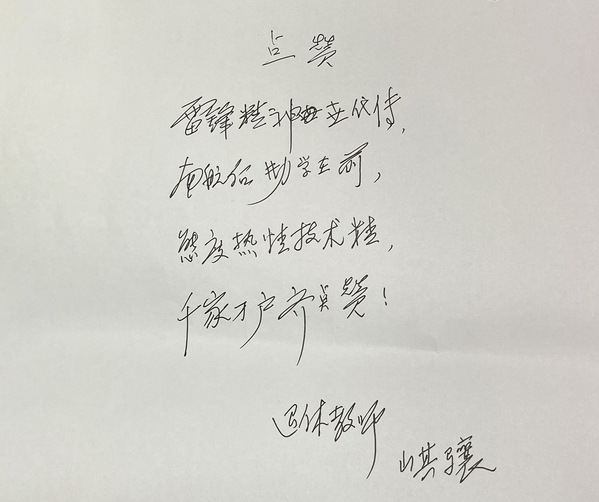 点赞
雷锋精神世代传，
南航后勤学在前，
态度热情技术精，
千家万户齐点赞！
退休教师
骐骧